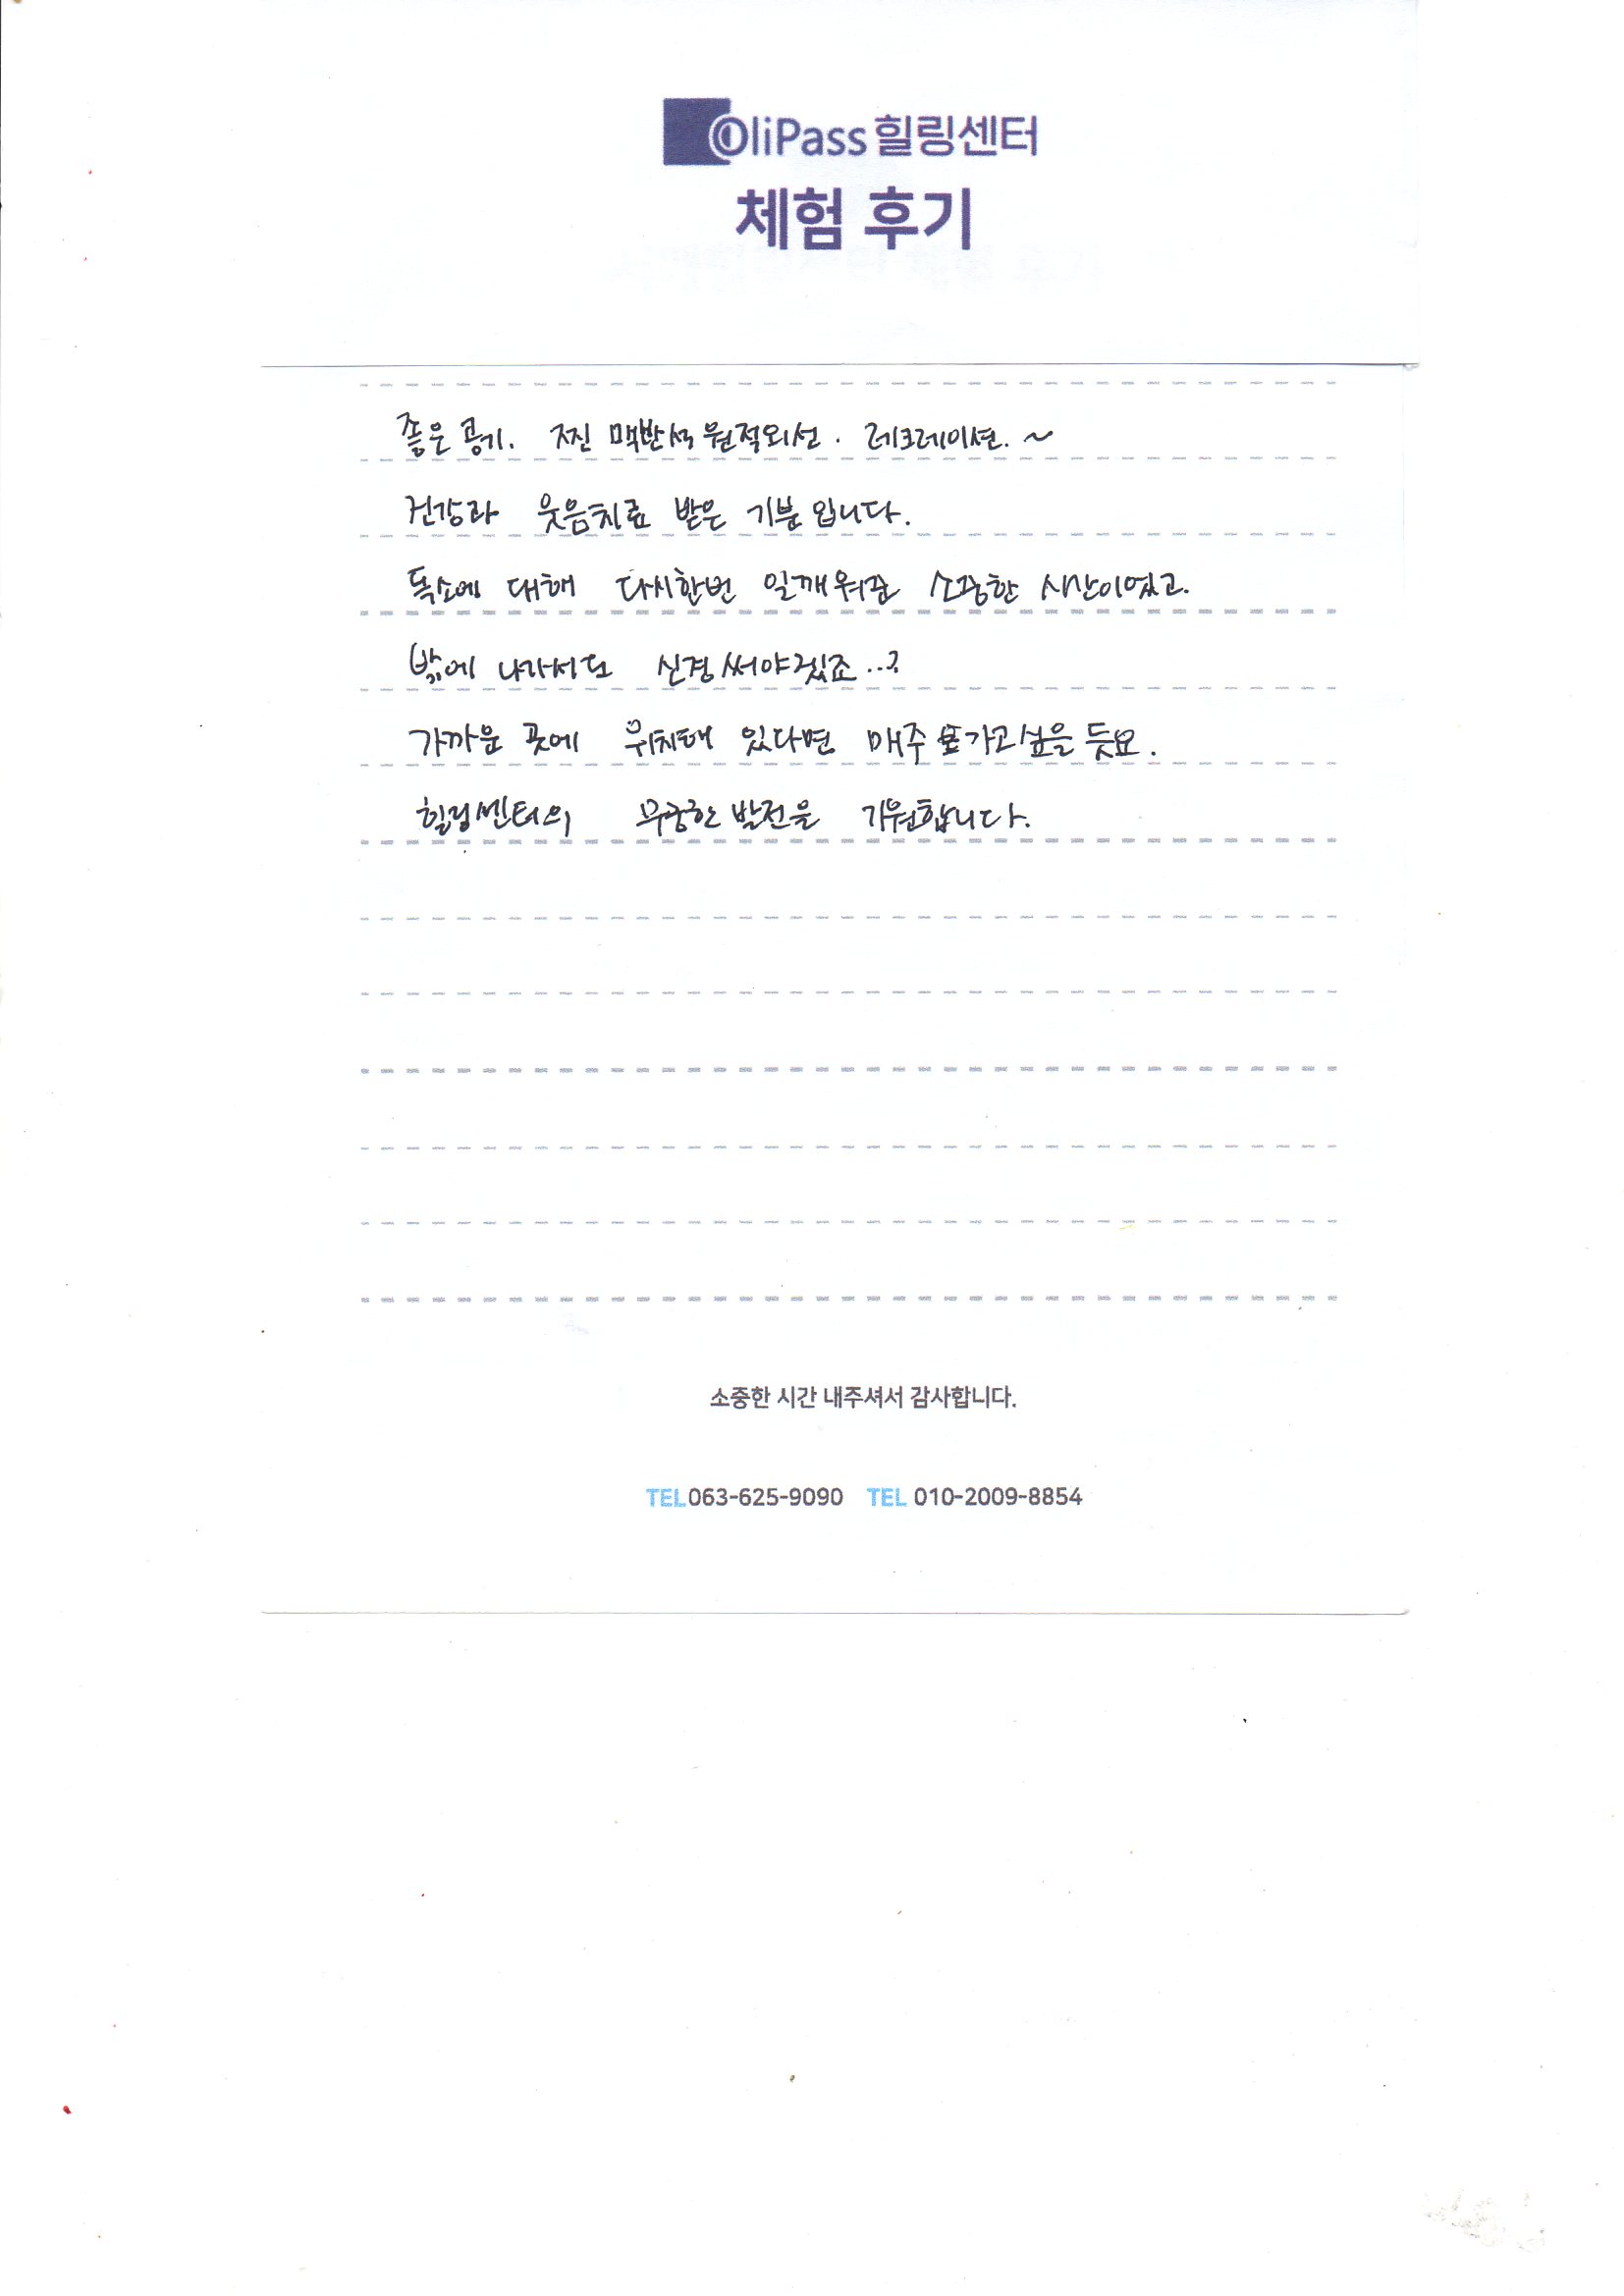 OliPass 힐링센터
체험 후기
좋은 공기. 찐 맥반석 원적외선. 레크레이션.~
건강과 웃음치료 받은 기분 입니다.
독소에 대해 다시한번 일깨워준 소중한 시간이었고.
밖에 나가서도 신경써야겠죠...?
가까운 곳에 위치해 있다면 매주 가고싶을 듯요.
힐링센터의 무궁한 발전을 기원합니다.
소중한 시간 내주셔서 감사합니다.
TEL 063-625-9090 TEL 010-2009-8854